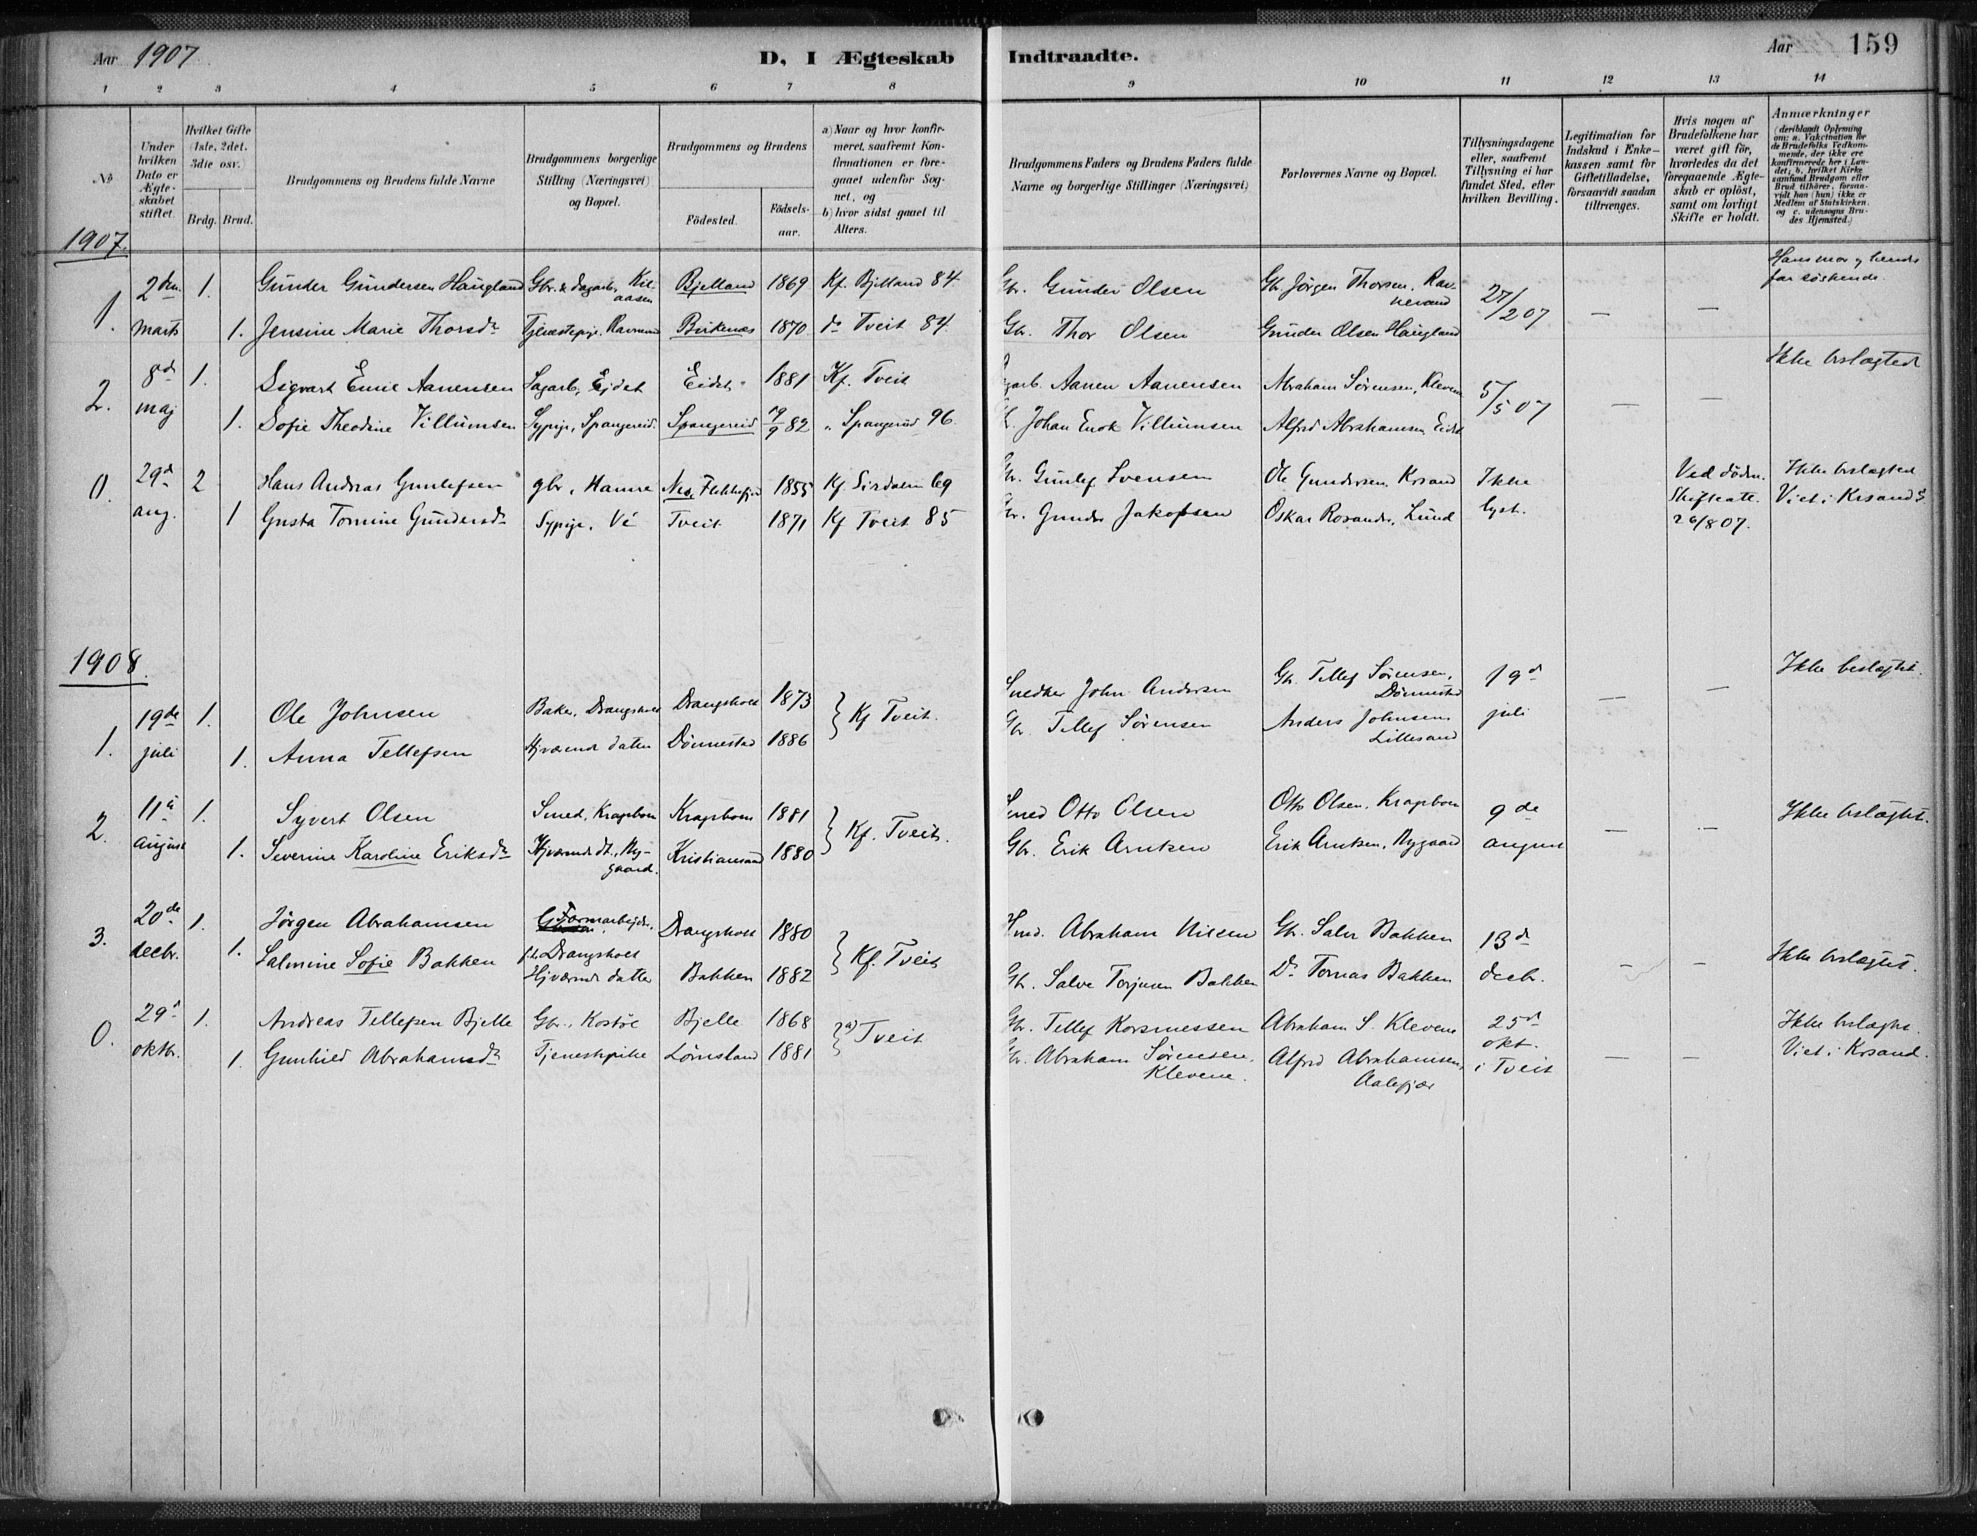 Aar 1907
D, I Ægteskab
Indtraadte.
Aar 159
1 2 3 4 5 6 7 8 9 10 11 12 13 14
No
Under hvilken Dato er Ægteskabet stiftet.
Hvilket Gifte (1ste, 2det, 3die osv.)
Brdg. Brud.
Brudgommens og Brudens fulde Navne
Brudgommens borgerlige Stilling (Næringsvei) og Bopæl.
Brudgommens og Brudens
Födested.
Födselsaar.
a) Naar og hvor konfirmeret, saafremt Konfirmationen er foregaaet udenfor Sognet, og
b) hvor sidst gaaet til Alters.
Brudgommens Faders og Brudens Faders fulde Navne og borgerlige Stillinger (Næringsvei)
Forlovernes Navne og Bopæl.
Tillysningsdagene eller, saafremt Tillysning ei har fundet Sted, efter hvilken Bevilling.
Legitimation for Indskud i Enkekassen samt for Giftetilladelse, forsaavidt saadan tiltrænges.
Hvis nogen af Brudefolkene har været gift för, hvorledes da det foregaaende Ægteskab er oplöst, samt om lovligt Skifte er holdt.
Anmærkninger (deriblandt Oplysning om: a. Vakcination for de Brudefolks Vedkommende, der ikke ere konfirmerede her i Landet; b. hvilket Kirkesamfund Brudgom eller Brud tilhörer, forsaavidt han (hun) ikke er Medlem af Statskirken, og c. udensogns Brudes Hjemsted.)
1907.
1. 2den marts 1. Gunder Gundersen Haugland Gbr. & dagarb. Bjelland 1869 Kf. Bjelland 84 Gbr. Gunder Olsen Gbr Jörgen Thorsen, Ravnevand 27/2 07 — — Hans mor og hendes far söskende.
1. Jensine Marie Thorsdr Tjenestepige, Birkenæs 1870 do Tveit 84. Gbr. Thor Olsen Gunder Olsen Haugland
2. 8de maj 1. Sigvart Emil Aanensen Sagarb., Ejdet Eidet 1881 Kf. Tveit Sagarb. Aanen Aanensen Abraham Sörensen, Kleven 5/5 07 — — Ikke beslægtet
1. Sofie Theodine Villumsen Sypige, Spangereid. Spangereid 19/9 82 " Spangereid 96. Johan Enok Villumsen Alfred Abrahamsen, Eidet
0. 29de aug. 2 Hans Andreas Gunlefsen gbr, Hamre Nes, Flekkefj. 1855 Kf. Sirdalen 69 Gbr. Gunlef Svensen Ole Gundersen, Krsand Ikke lyst. Ved döden. Skifteatt. 26/8 07. Ikke beslægted Viet i Krsand S
1 Gusta Tomine Gundersdr Sypige, Vé Tveit 1871 Kf Tveit 85 Gbr. Gunder Jakobsen Oskar Rosander, Lund
1908.
1. 19de juli 1. Ole Johnsen Baker, Drangsholt Drangsholt 1873 Kf Tveit. Snedker John Andersen Gbr. Tellef Sörensen, Dönnestad 19de juli — — Ikke beslægtet.
1. Anna Tellefsen Hjværende datter Dönnestad 1886 Gbr. Tellef Sörensen Anders Johnsen Lillesand
2. 11te august 1. Syvert Olsen Smed, Krageboen Krageboen 1881 Kf. Tveit. Smed Otto Olsen Otto Olsen, Krageboen 9de august — — Ikke beslægtet.
1. Severine Karoline Eriksdr Hjværende dt., Nygaard. Kristiansand 1880 Gbr. Erik Arntsen Erik Arntsen, Nygaard
3. 20de decbr. 1. Jörgen Abrahamsen Formarbejder, Drangsholt Drangsholt 1880 Kf. Tveit Smed. Abraham Nilsen Gbr. Salve Bakken 13de decb. — — Ikke beslægtet.
1. Salmine Sofie Bakken Hjværende datter Bakken 1882 Gbr. Salve Torjusen Bakken Do Tomas Bakken
0. 29de oktbr. 1. Andreas Tellefsen Bjelle Gbr., Kostöl Bjelle 1868 a) Tveit Gbr. Tellef Rorsmessen Abraham S. Klevene 25de okt. i Tveit — — Ikke beslægtet. Viet i Krsand.
1. Gunhild Abrahamsdr Tjenestepike Lömsland 1881 Gbr. Abraham Sörensen, Klevene. Alfred Abrahamsen, Aalefjær